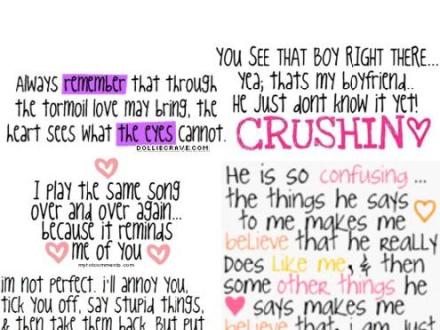 Always remember that through
the tormoil love may bring, the
heart sees what the eyes cannot.
DOLLIECRAVE.COM
YOU SEE THAT BOY RIGHT THERE...
Yea; thats my boyfriend..
He Just dont know it yet!
CRUSHIN
I play the same song
over and over again...
because it reminds
me of you
myhotcomments.com
im not perfect. i'll annoy you,
tick you off, say stupid things,
& then take them back. But put
He is so confusing ...
the things he says
to me makes me
believe that he REALLY
Does Like me, & then
some other things he
says makes me
believe that i am just